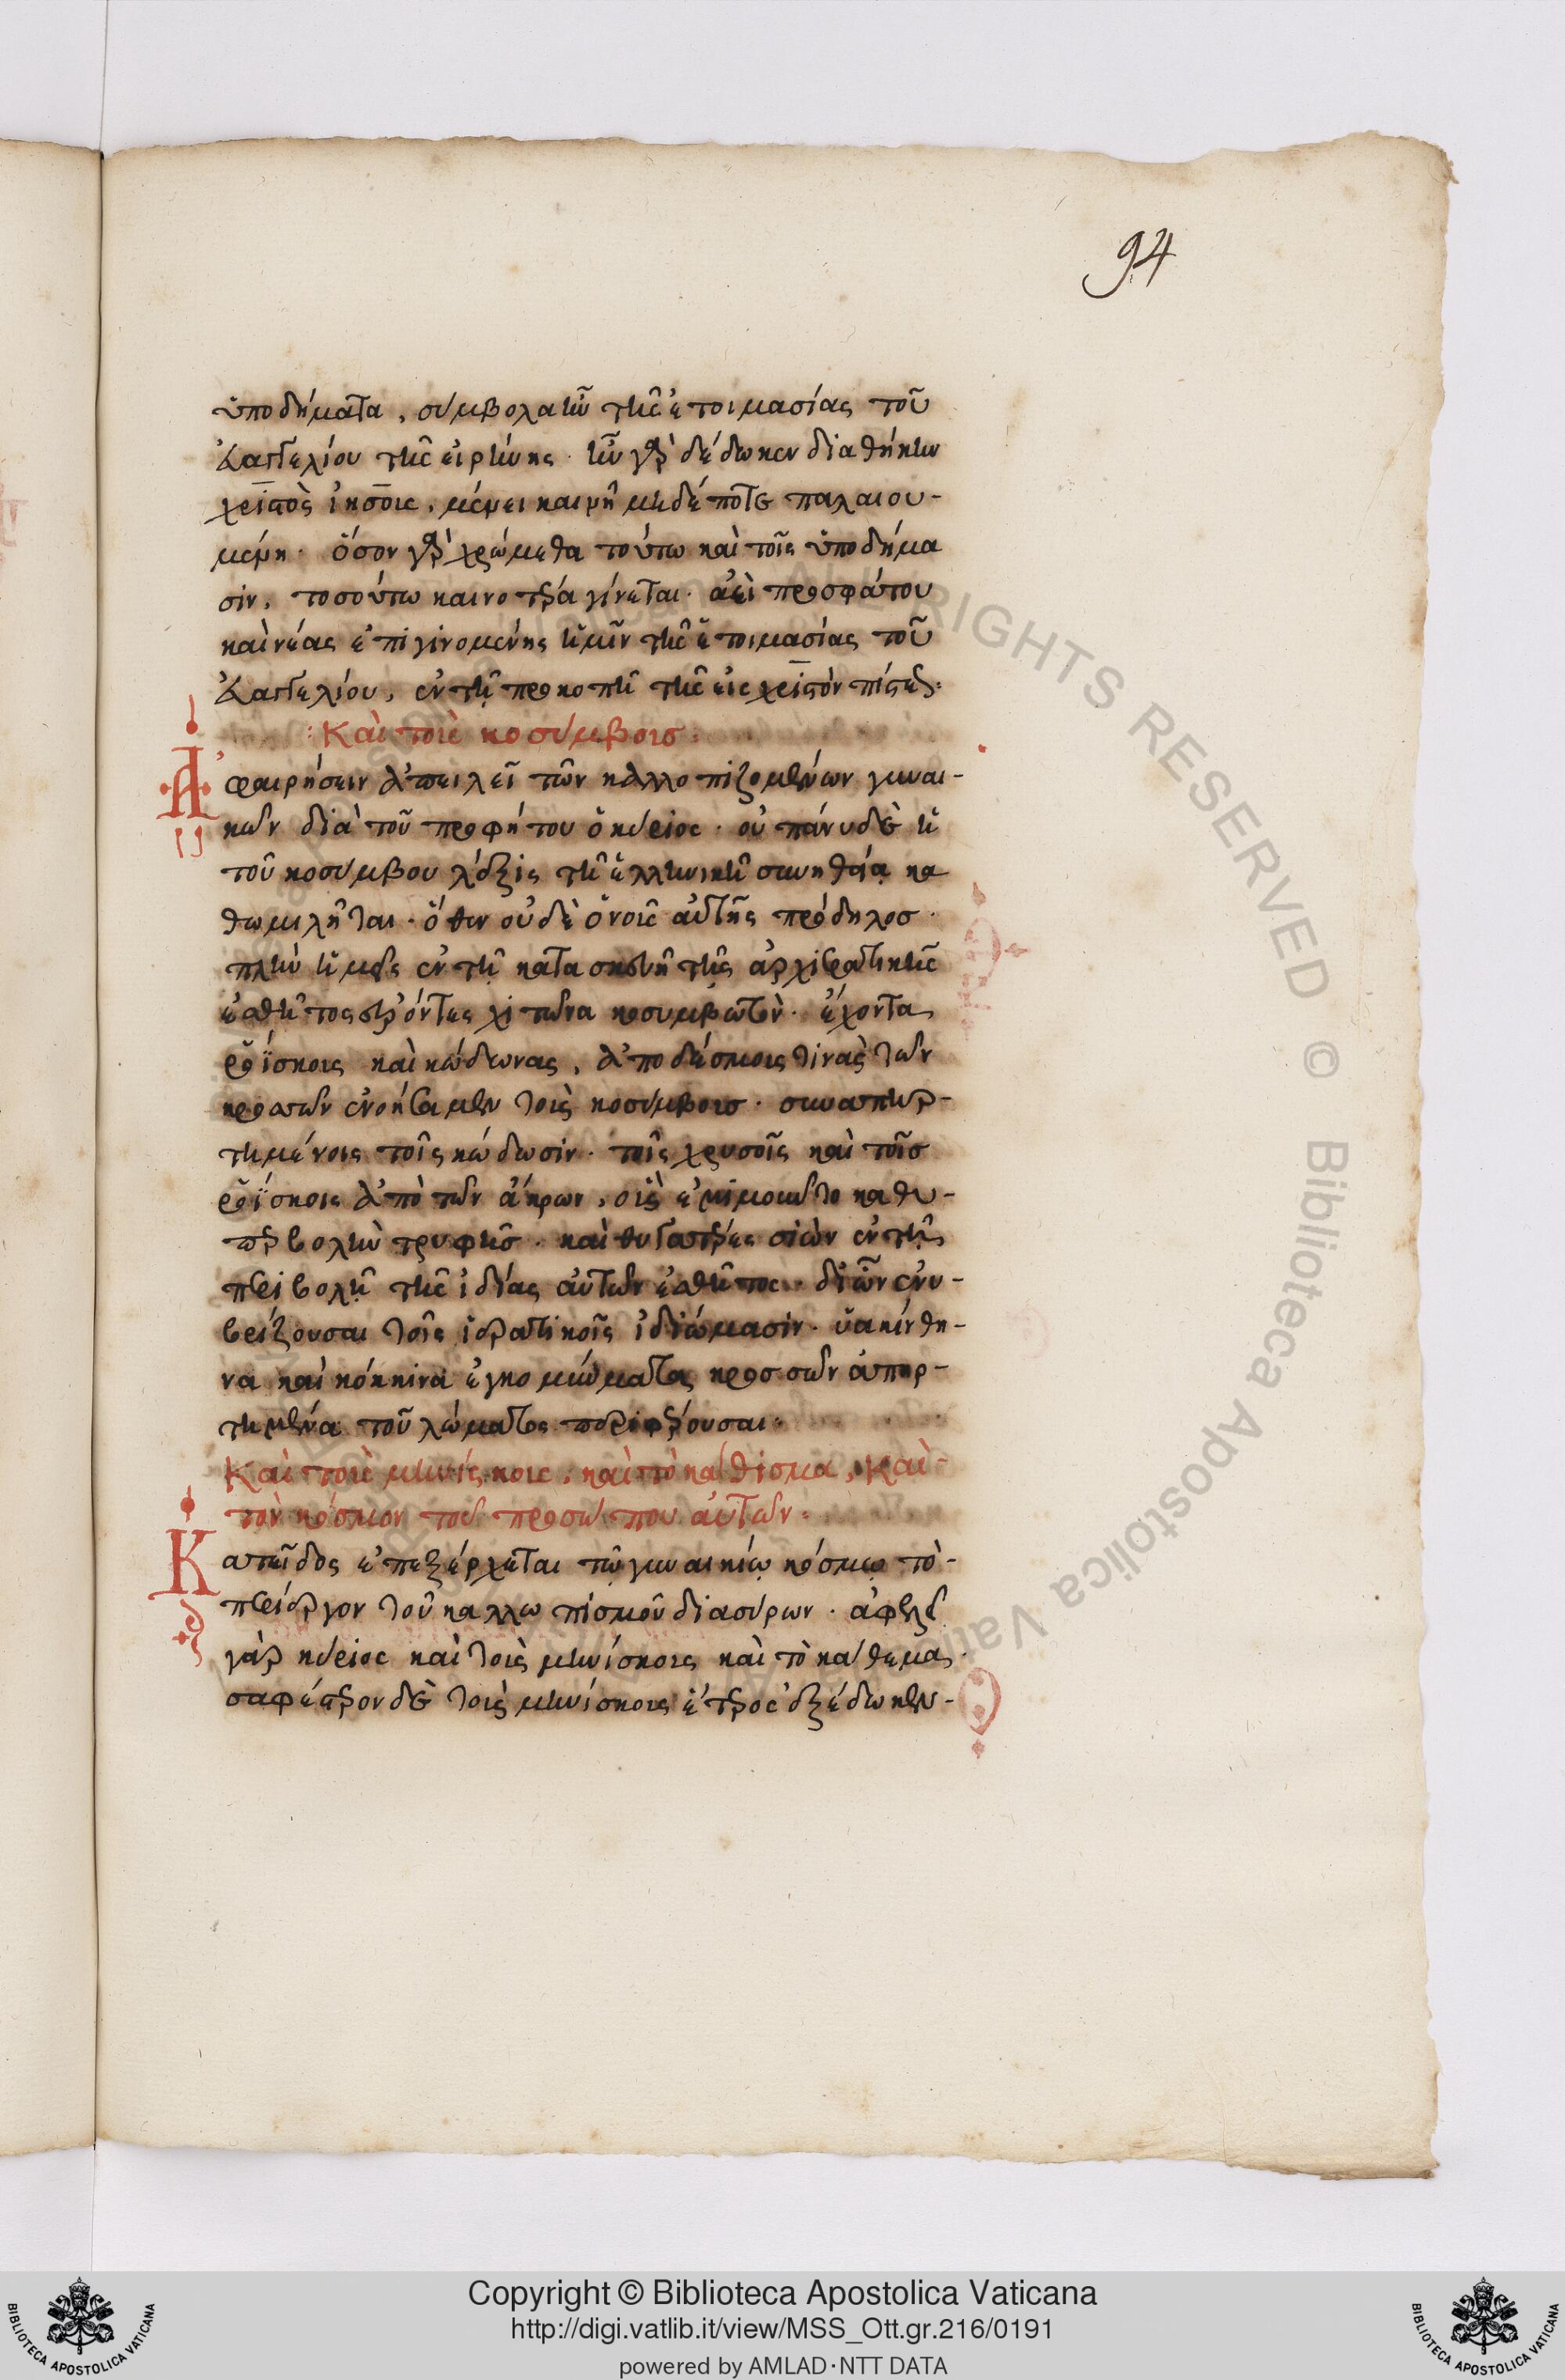 94
ὑποδήματα, σύμβολα ἦν τῆς ἑτοιμασίας τοῦ
εὐαγγελίου τῆς εἰρήνης. ἣν γὰρ δέδωκεν διαθήκην
χριστὸς ἰησοῦς, μένει καινὴ μηδέποτε παλαιου-
μένη. ὅσον γὰρ χρώμεθα τούτω καὶ τοῖς ὑποδήμα
σιν, τοσούτω καινότερα γίνεται. ἀεὶ προσφάτου
καὶ νέας ἐπιγινομένης ἡμῖν τῆς ἑτοιμασίας τοῦ
εὐαγγελίου, ἐν τῇ προκοπῇ τῆς εἰς χριστὸν πίστεως:
: Καὶ τοὺς κοσύμβους.
Ἀφαιρήσειν ἀπειλεῖ τῶν καλλοπιζομένων γυναι-
κῶν διὰ τοῦ προφήτου ὁ κύριος. οὐ πάνυ δὲ ἡ
τοῦ κοσύμβου λέξις τῇ ἑλληνικῇ συνηθεία κα
θωμιλῆται. ὅθεν οὐδὲ ὁ νοῦς αὐτῆς πρόδηλος.
πλὴν ἡμεῖς ἐν τῇ κατασκευῇ τῆς ἀρχιερατικῆς
ἐσθῆτος εὑρόντες χιτῶνα κοσυμβωτὸν. ἔχοντα
ῥοΐσκους καὶ κώδωνας, ἀποδέσμους τινὰς τῶν
κροσσῶν ἐνοήσαμεν τοὺς κοσύμβους. συναπηρ-
τημένους τοῖς κώδωσιν. τοῖς χρυσοῖς καὶ τοῖς
ῥοΐσκοις ἀπὸ τῶν ἄκρων, οὓς ἐμιμοῦντο καθυ-
περβολὴν τρυφῆς. καὶ θυγατέρες σιὼν ἐν τῇ
περιβολῇ τῆς ἰδίας αὐτῶν ἐσθῆτος. δι ὧν ἐνυ-
βρίζουσαι τοῖς ἱερατικοῖς ἰδιώμασιν. ὑακίνθη-
να καὶ κόκκινα ἐγκομώματα κροσσῶν ἀπηρ-
τημένα τοῦ λώματος περιφέρουσαι.
Καὶ τοὺς μηνίσκους, καὶ τὸ κάθισμα, Καὶ-
τὸν κόσμον τοῦ προσώπου αὐτῶν.
Κατ εἶδος ἐπεξέρχεται τῷ γυναικίῳ κόσμῳ τὸ-
περίεργον τοῦ καλλωπισμοῦ διασύρων. ἀφελεῖ
γὰρ κύριος καὶ τοὺς μηνίσκους καὶ τὸ κάθεμα.
σαφέστερον δὲ τοὺς μηνίσκους ἕτερος ἐξέδωκεν-
Copyright © Biblioteca Apostolica Vaticana
http://digi.vatlib.it/view/MSS_Ott.gr.216/0191
powered by AMLAD·NTT DATA